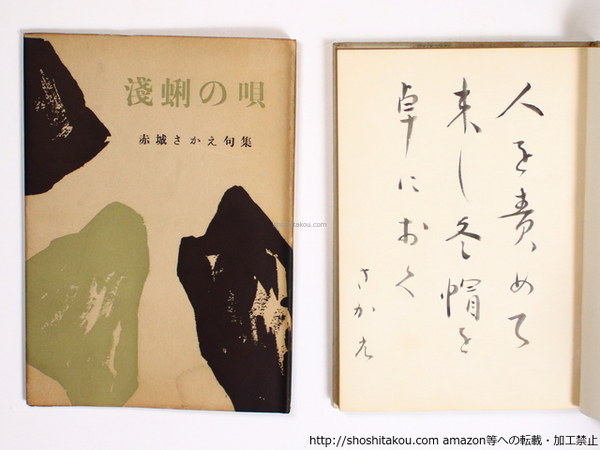 淺蜊の唄
赤城さかえ句集
人を責めて
来し冬帽を
卓におく
さかえ
shoshitakou.com
http://shoshitakou.com amazon等への転載・加工禁止